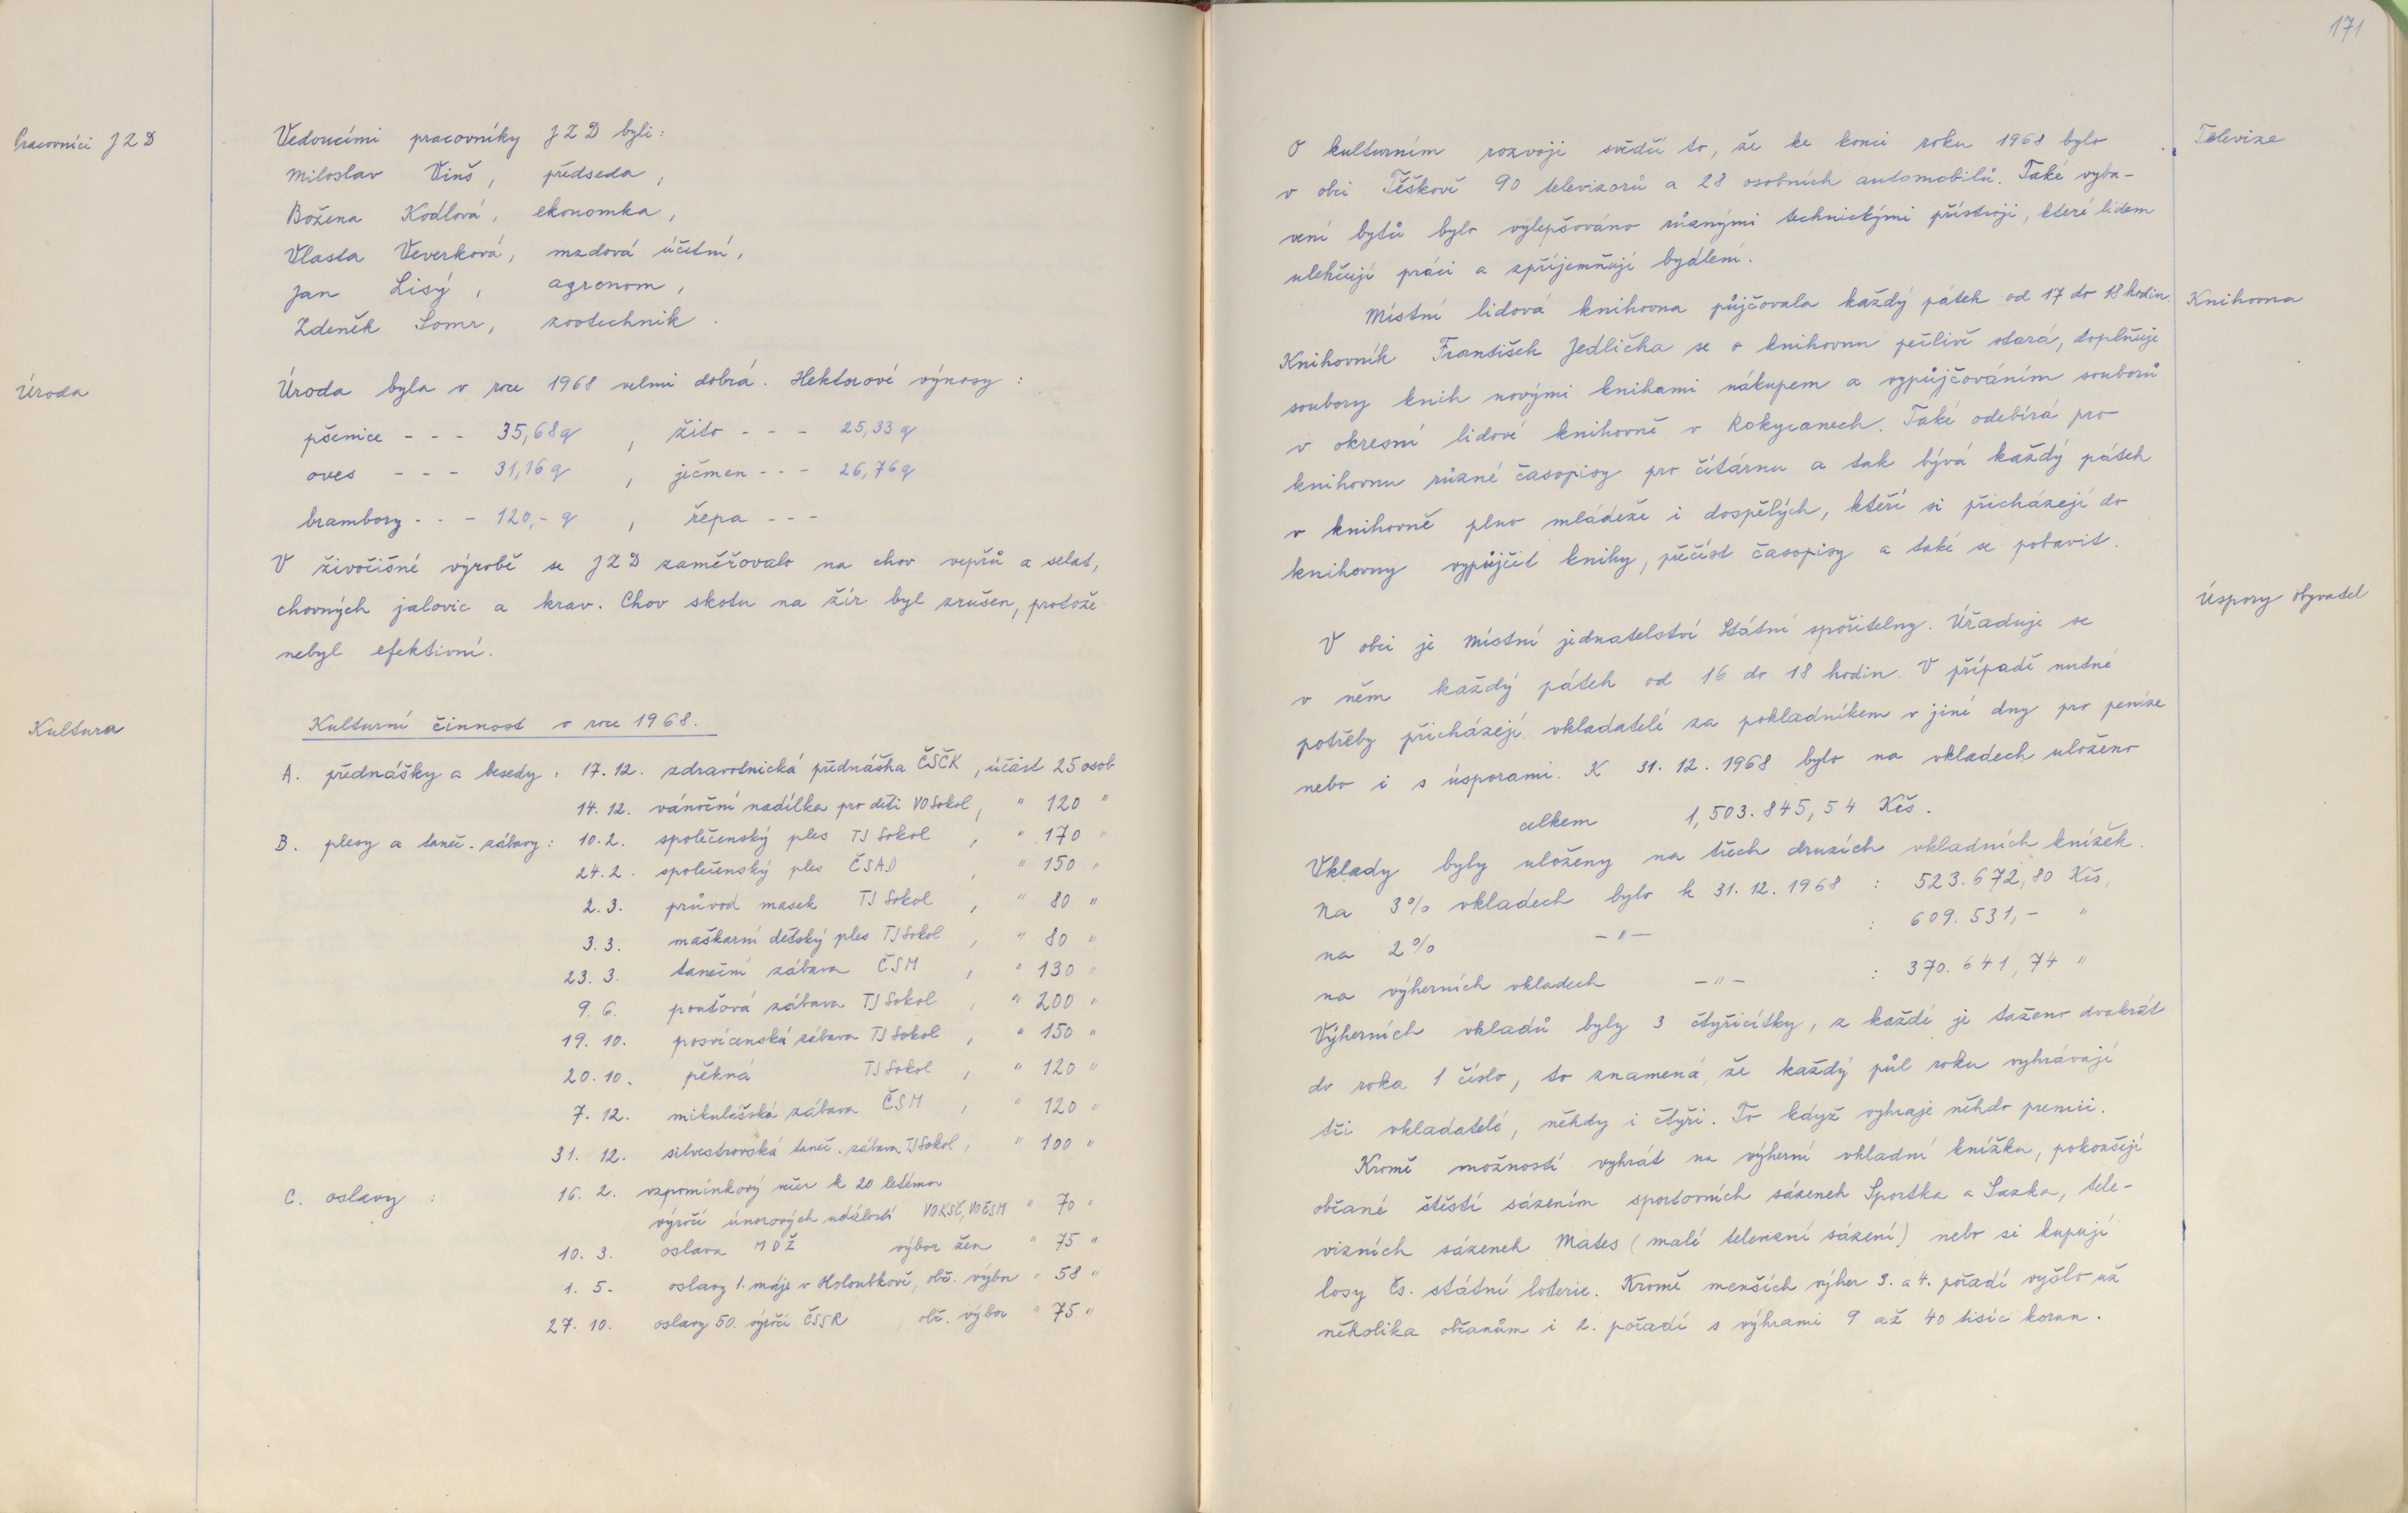 Pracovníci JZD
Vedoucími pracovníky JZD byli:
Miloslav Viňš, předseda,
Božena Kodlová, ekonomka,
Vlasta Veverková, mzdová účetní,
Jan Lisý, agronom,
Zdeněk Šomr, zootechnik.
Úroda
Úroda byla v roce 1968 velmi dobrá. Hektarové výnosy:
pšenice - - - 35,68 q, žito - - - 25,33 q
oves - - - 31,16 q, ječmen - - - 26,76 q
brambory - - - 120,- q, řepa - - -
V živočišné výrobě se JZD zaměřovalo na chov vepřů a selat,
chovných jalovic a krav. Chov skotu na žír byl zrušen, protože
nebyl efektivní.
Kultura
Kulturní činnost v roce 1968.
A. přednášky a besedy: 17.12. zdravotnická přednáška ČSČK, účást 25 osob
14.12. vánoční nadílka pro děti VO Sokol, " 120 "
B. plesy a taneč. zábavy: 10.2. společenský ples TJ Sokol, " 170 "
24.2. společenský ples ČSAD, " 150 "
2.3. průvod masek TJ Sokol, " 80 "
3.3. maškarní dětský ples TJ Sokol, " 80 "
23.3. taneční zábava ČSM, " 130 "
9.6. pouťová zábava TJ Sokol, " 200 "
19.10. posvícenská zábava TJ Sokol, " 150 "
20.10. pěkná TJ Sokol, " 120 "
7.12. mikulášská zábava ČSM, " 120 "
31.12. silvestrovská taneč. zábava TJ Sokol, " 100 "
C. oslavy: 16.2. vzpomínkový večer k 20 letému
výročí únorových událostí VO KSČ, VO ČSM " 70 "
10.3. oslava MDŽ výbor žen " 75 "
1.5. oslavy 1. máje v Holoubkově, obč. výbor " 58 "
27.10. oslavy 50. výročí ČSSR, obč. výbor " 75 "
171
Televize
O kulturním rozvoji svědčí to, že ke konci roku 1968 bylo
v obci Těškově 90 televizorů a 28 osobních automobilů. Také vyba-
vení bytů bylo vylepšováno různými technickými přístroji, které lidem
ulehčují práci a zpříjemňují bydlení.
Knihovna
Místní lidová knihovna půjčovala každý pátek od 17 do 18 hodin.
Knihovník František Jedlička se o knihovnu pečlivě stará, doplňuje
soubory knih novými knihami nákupem a vypůjčováním souborů
v okresní lidové knihovně v Rokycanech. Také odebírá pro
knihovnu různé časopisy pro čítárnu a tak bývá každý pátek
v knihovně plno mládeže i dospělých, kteří si přicházejí do
knihovny vypůjčit knihy, přečíst časopisy a také se pobavit.
Úspory obyvatel
V obci je Místní jednatelství Státní spořitelny. Úřaduje se
v něm každý pátek od 16 do 18 hodin. V případě nutné
potřeby přicházejí vkladatelé za pokladníkem v jiné dny pro peníze
nebo i s úsporami. K 31.12.1968 bylo na vkladech uloženo
celkem 1,503.845,54 Kčs.
Vklady byly uloženy na třech druzích vkladních knížek.
Na 3% vkladech bylo k 31.12.1968 : 523.672,80 Kčs,
na 2% -"- : 609.531,- "
na výherních vkladech -"- : 370.641,74 "
Výherních vkladů byly 3 čtyřicítky, z každé je taženo dvakrát
do roka 1 číslo, to znamená, že každý půl roku vyhrávají
tři vkladatelé, někdy i čtyři. To když vyhraje někdo premii.
Kromě možností vyhrát na výherní vkladní knížku, pokoušejí
občané štěstí sázením sportovních sázenek Sportka a Sazka, tele-
vizních sázenek Mates (malé televizní sázení) nebo si kupují
losy Čs. státní loterie. Kromě menších výher 3. a 4. pořadí vyšlo už
několika občanům i 2. pořadí s výhrami 9 až 40 tisíc korun.